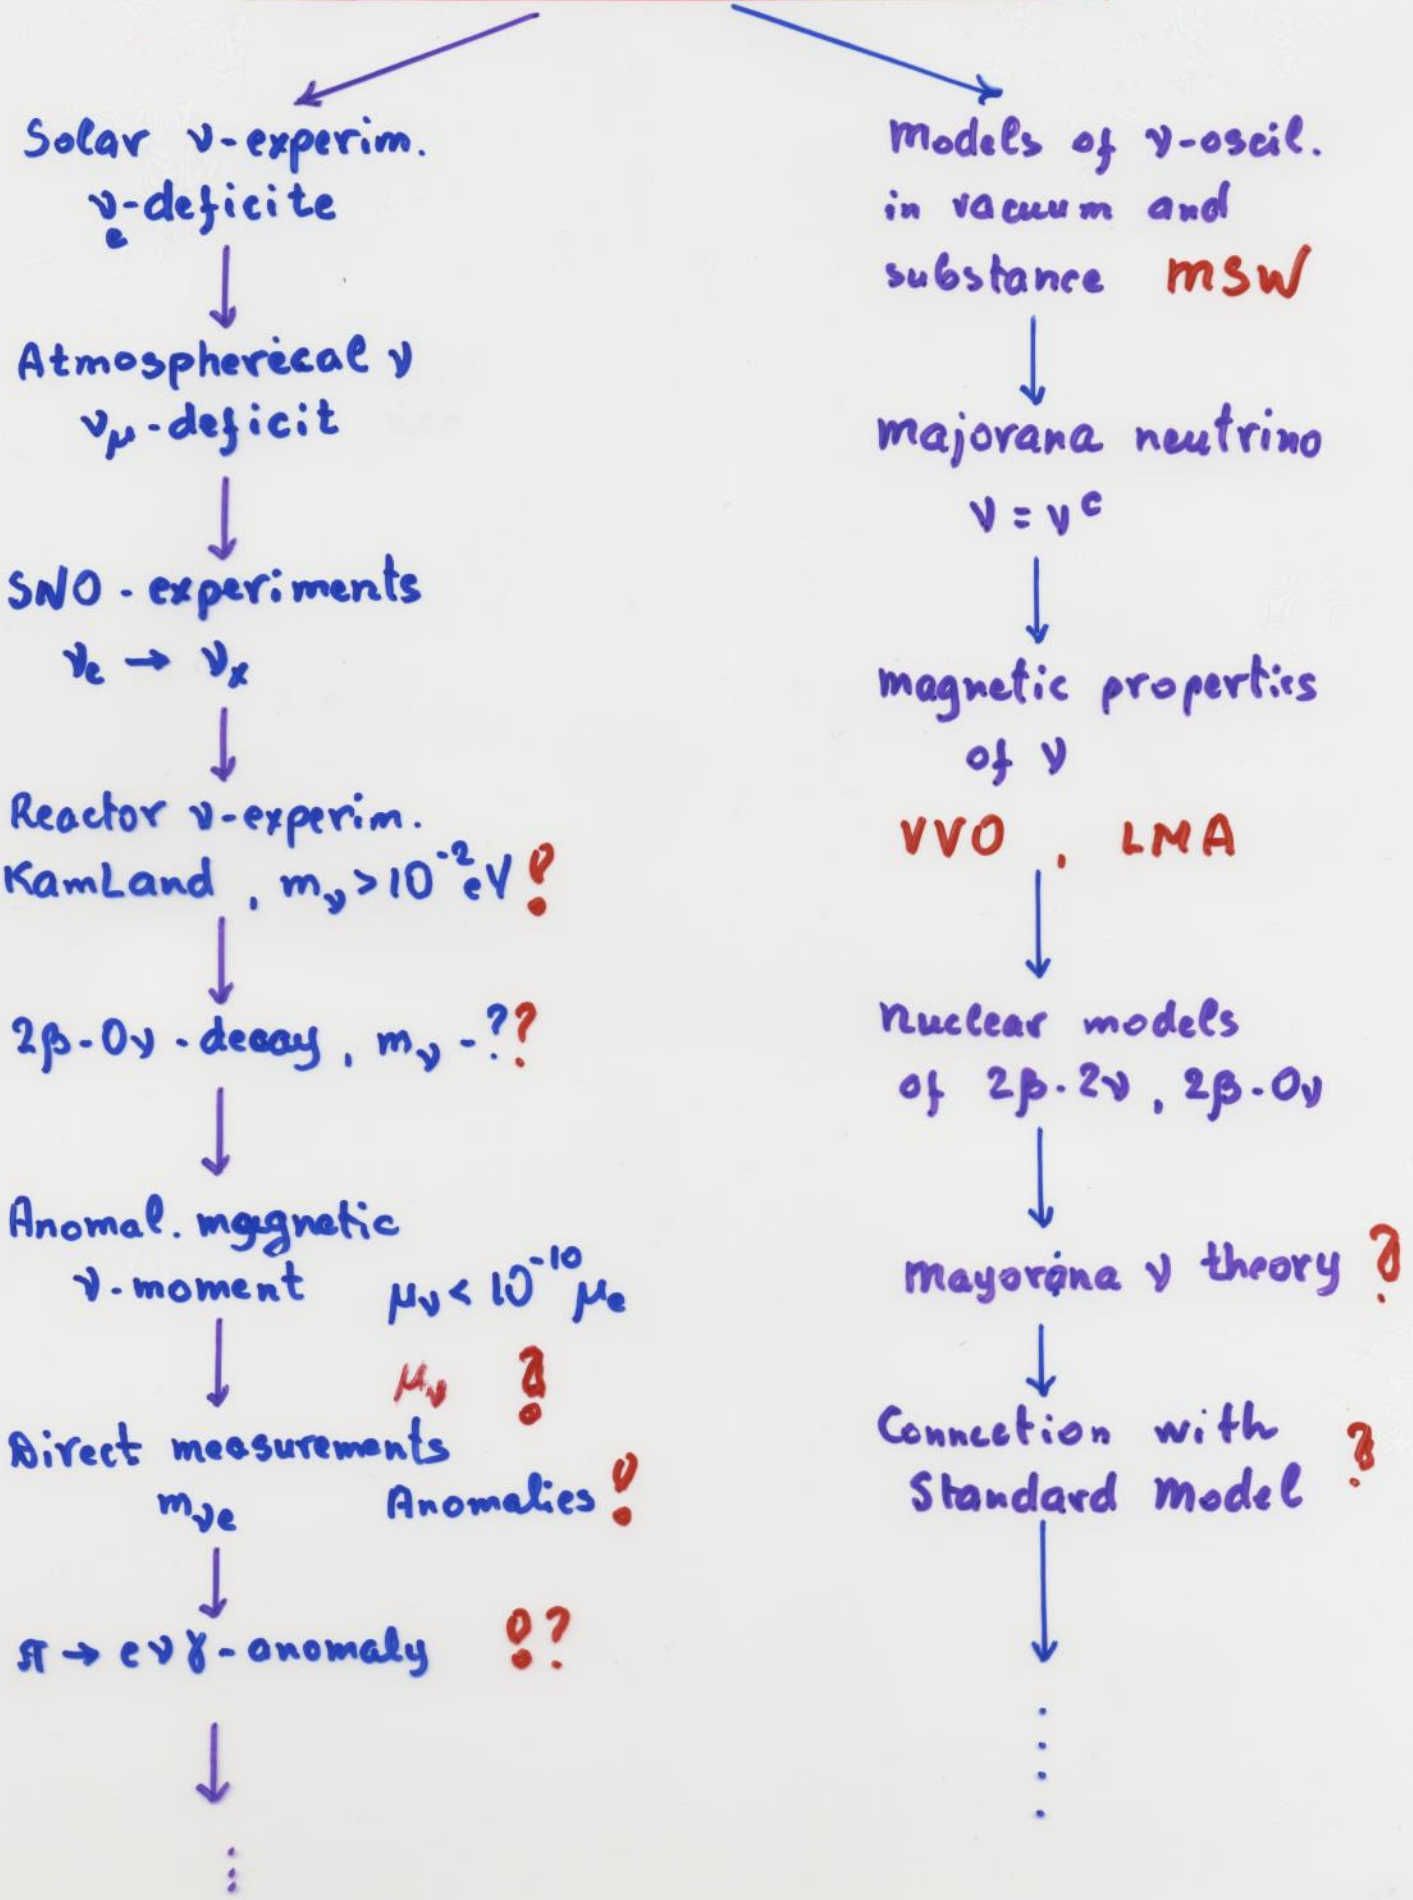 Solar ν-experim.
νe-deficite
Atmospherical ν
νμ-deficit
SNO - experiments
νe → νx
Reactor ν-experim.
KamLand , mν > 10^-2 eV !
2β-0ν-decay, mν - ??
Anomal. magnetic
ν-moment μν < 10^-10 μe
μν ?
Direct measurements
mνe Anomalies !
π → eνγ-anomaly !?
⋮
Models of ν-oscil.
in vacuum and
substance MSW
majorana neutrino
ν = ν^c
magnetic properties
of ν
VVO , LMA
Nuclear models
of 2β-2ν, 2β-0ν
Mayorana ν theory ?
Connection with
Standard Model ?
⋮